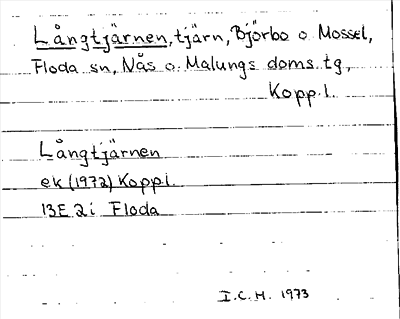 Långtjärnen, tjärn, Björbo o. Mossel,
Floda sn, Nås o. Malungs doms. tg,
Kopp. l.
Långtjärnen
ek (1972) Kopp l.
13E 2i Floda
I.C.H. 1973